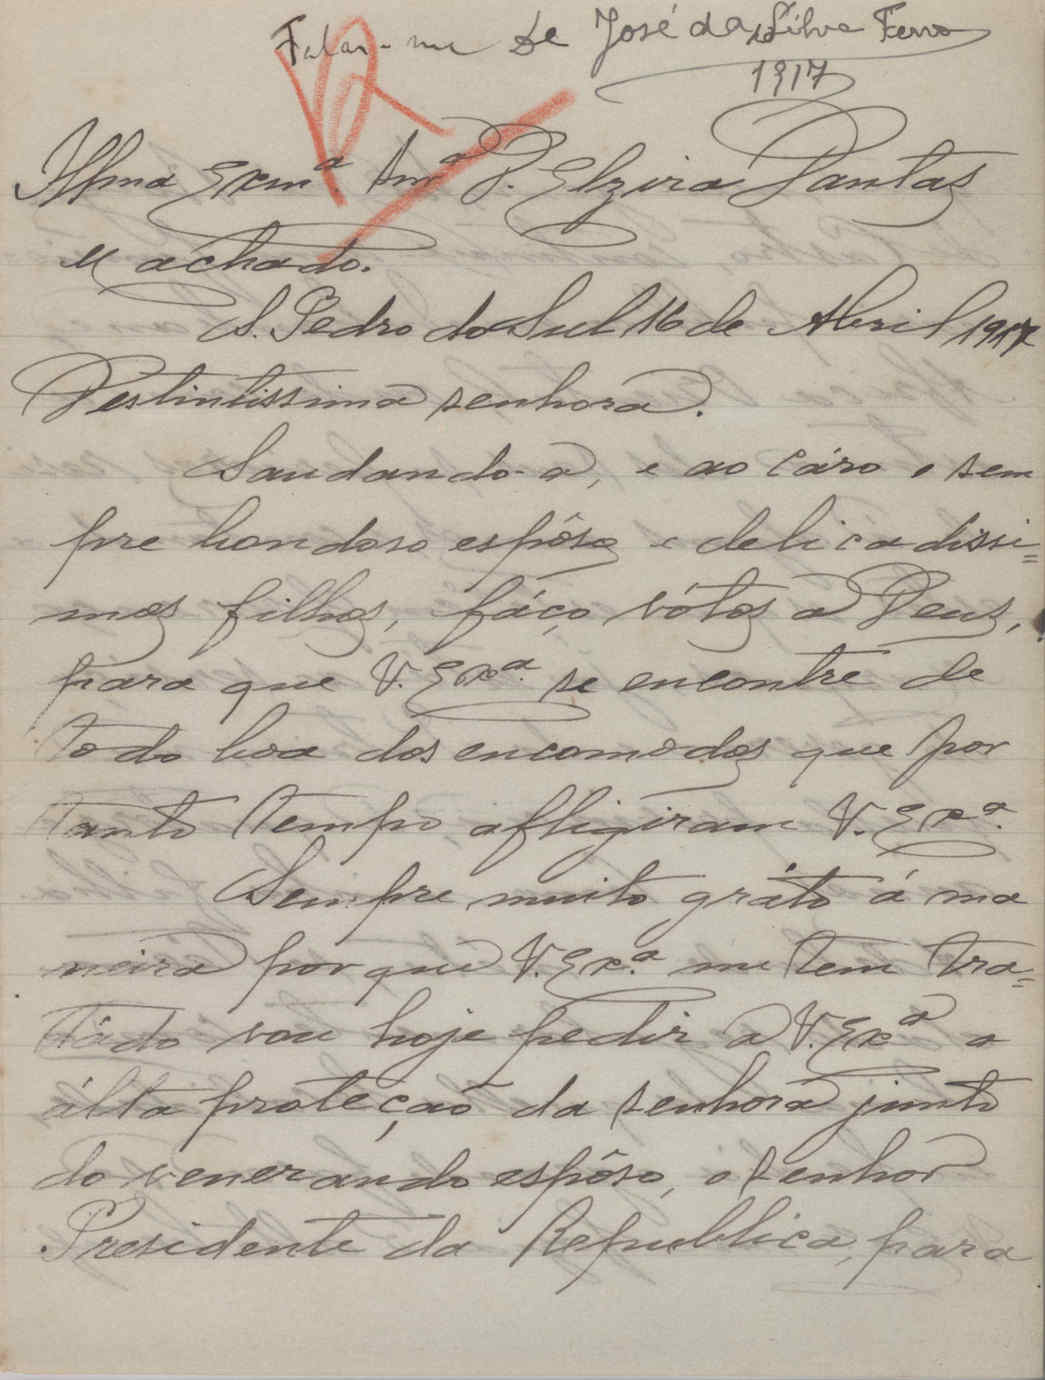 Falar-me de José da Silva Ferro
1917
Illma Exmª. Snrª D. Elzira Dantas
Machado.
S. Pedro do Sul 16 de Abril 1917
Destintissima senhora.
Saudando-a, e ao cáro e sem
pre bondoso espôso e delicadissi=
mos filhos, fáço vótos a Deus,
para que V. Exª. se encontre de
todo boa dos encomodos que por
tanto tempo afligiram V. Exª.
Sempre muito gráto á ma
neira por que V. Exª. me tem tra=
tádo vou hoje pedir a V. Exª a
álta proteçaõ da senhora junto
do venerando espôso, o senhor
Presidente da Republica, para